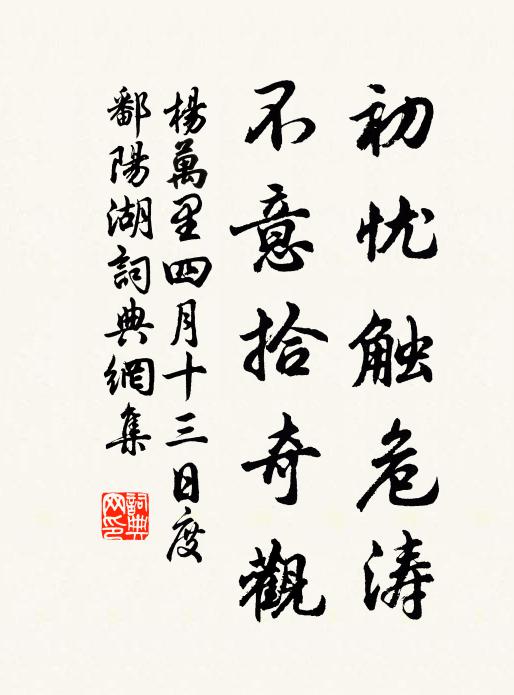 初忧触危涛
不意拾奇觀
楊萬里四月十三日度
鄱陽湖詞典網集
詞典
网印